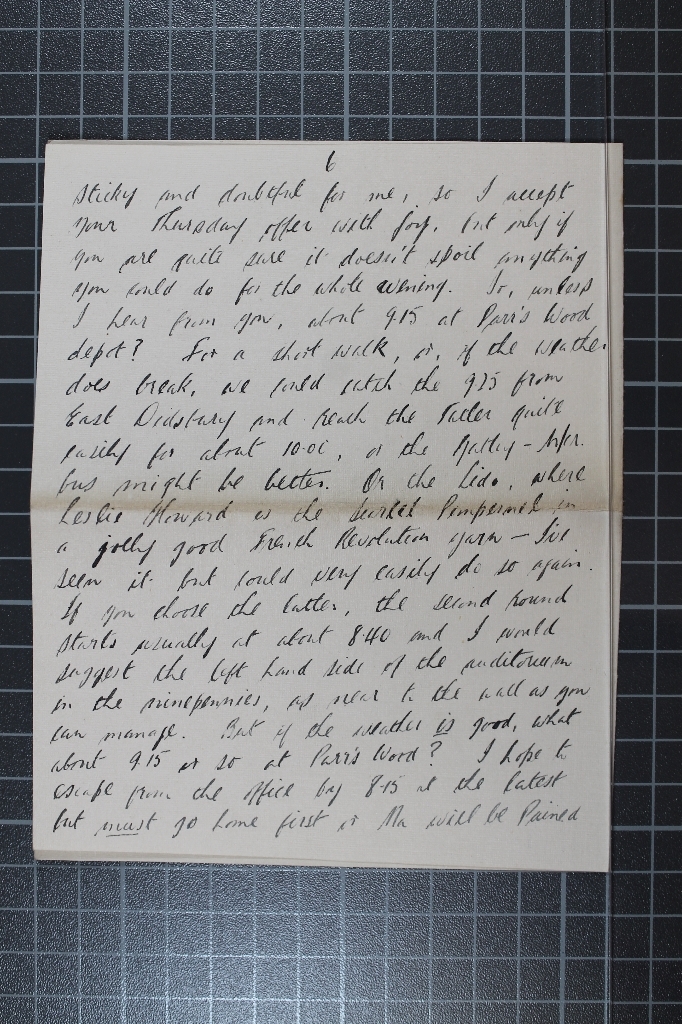 6
sticky and doubtful for me, so I accept
your Thursday offer with joy, but only if
you are quite sure it doesn't spoil anything
you could do for the whole evening. So, unless
I hear from you, about 9.15 at Parr's Wood
depot? For a short walk, or, if the weather
does break, we could catch the 9.25 from
East Didsbury and reach the Tatler quite
easily for about 10.0, or the Gatley - M/cr.
bus might be better. Or the Lido, where
Leslie Howard is the Scarlet Pimpernel in
a jolly good French Revolution yarn - I've
seen it but could very easily do so again.
If you choose the latter, the second round
starts usually at about 8.40 and I would
suggest the left hand side of the auditorium
in the ninepennies, as near to the wall as you
can manage. But if the weather is good, what
about 9.15 or so at Parr's Wood? I hope to
escape from the office by 8.15 at the latest
but must go home first or Ma will be Pained